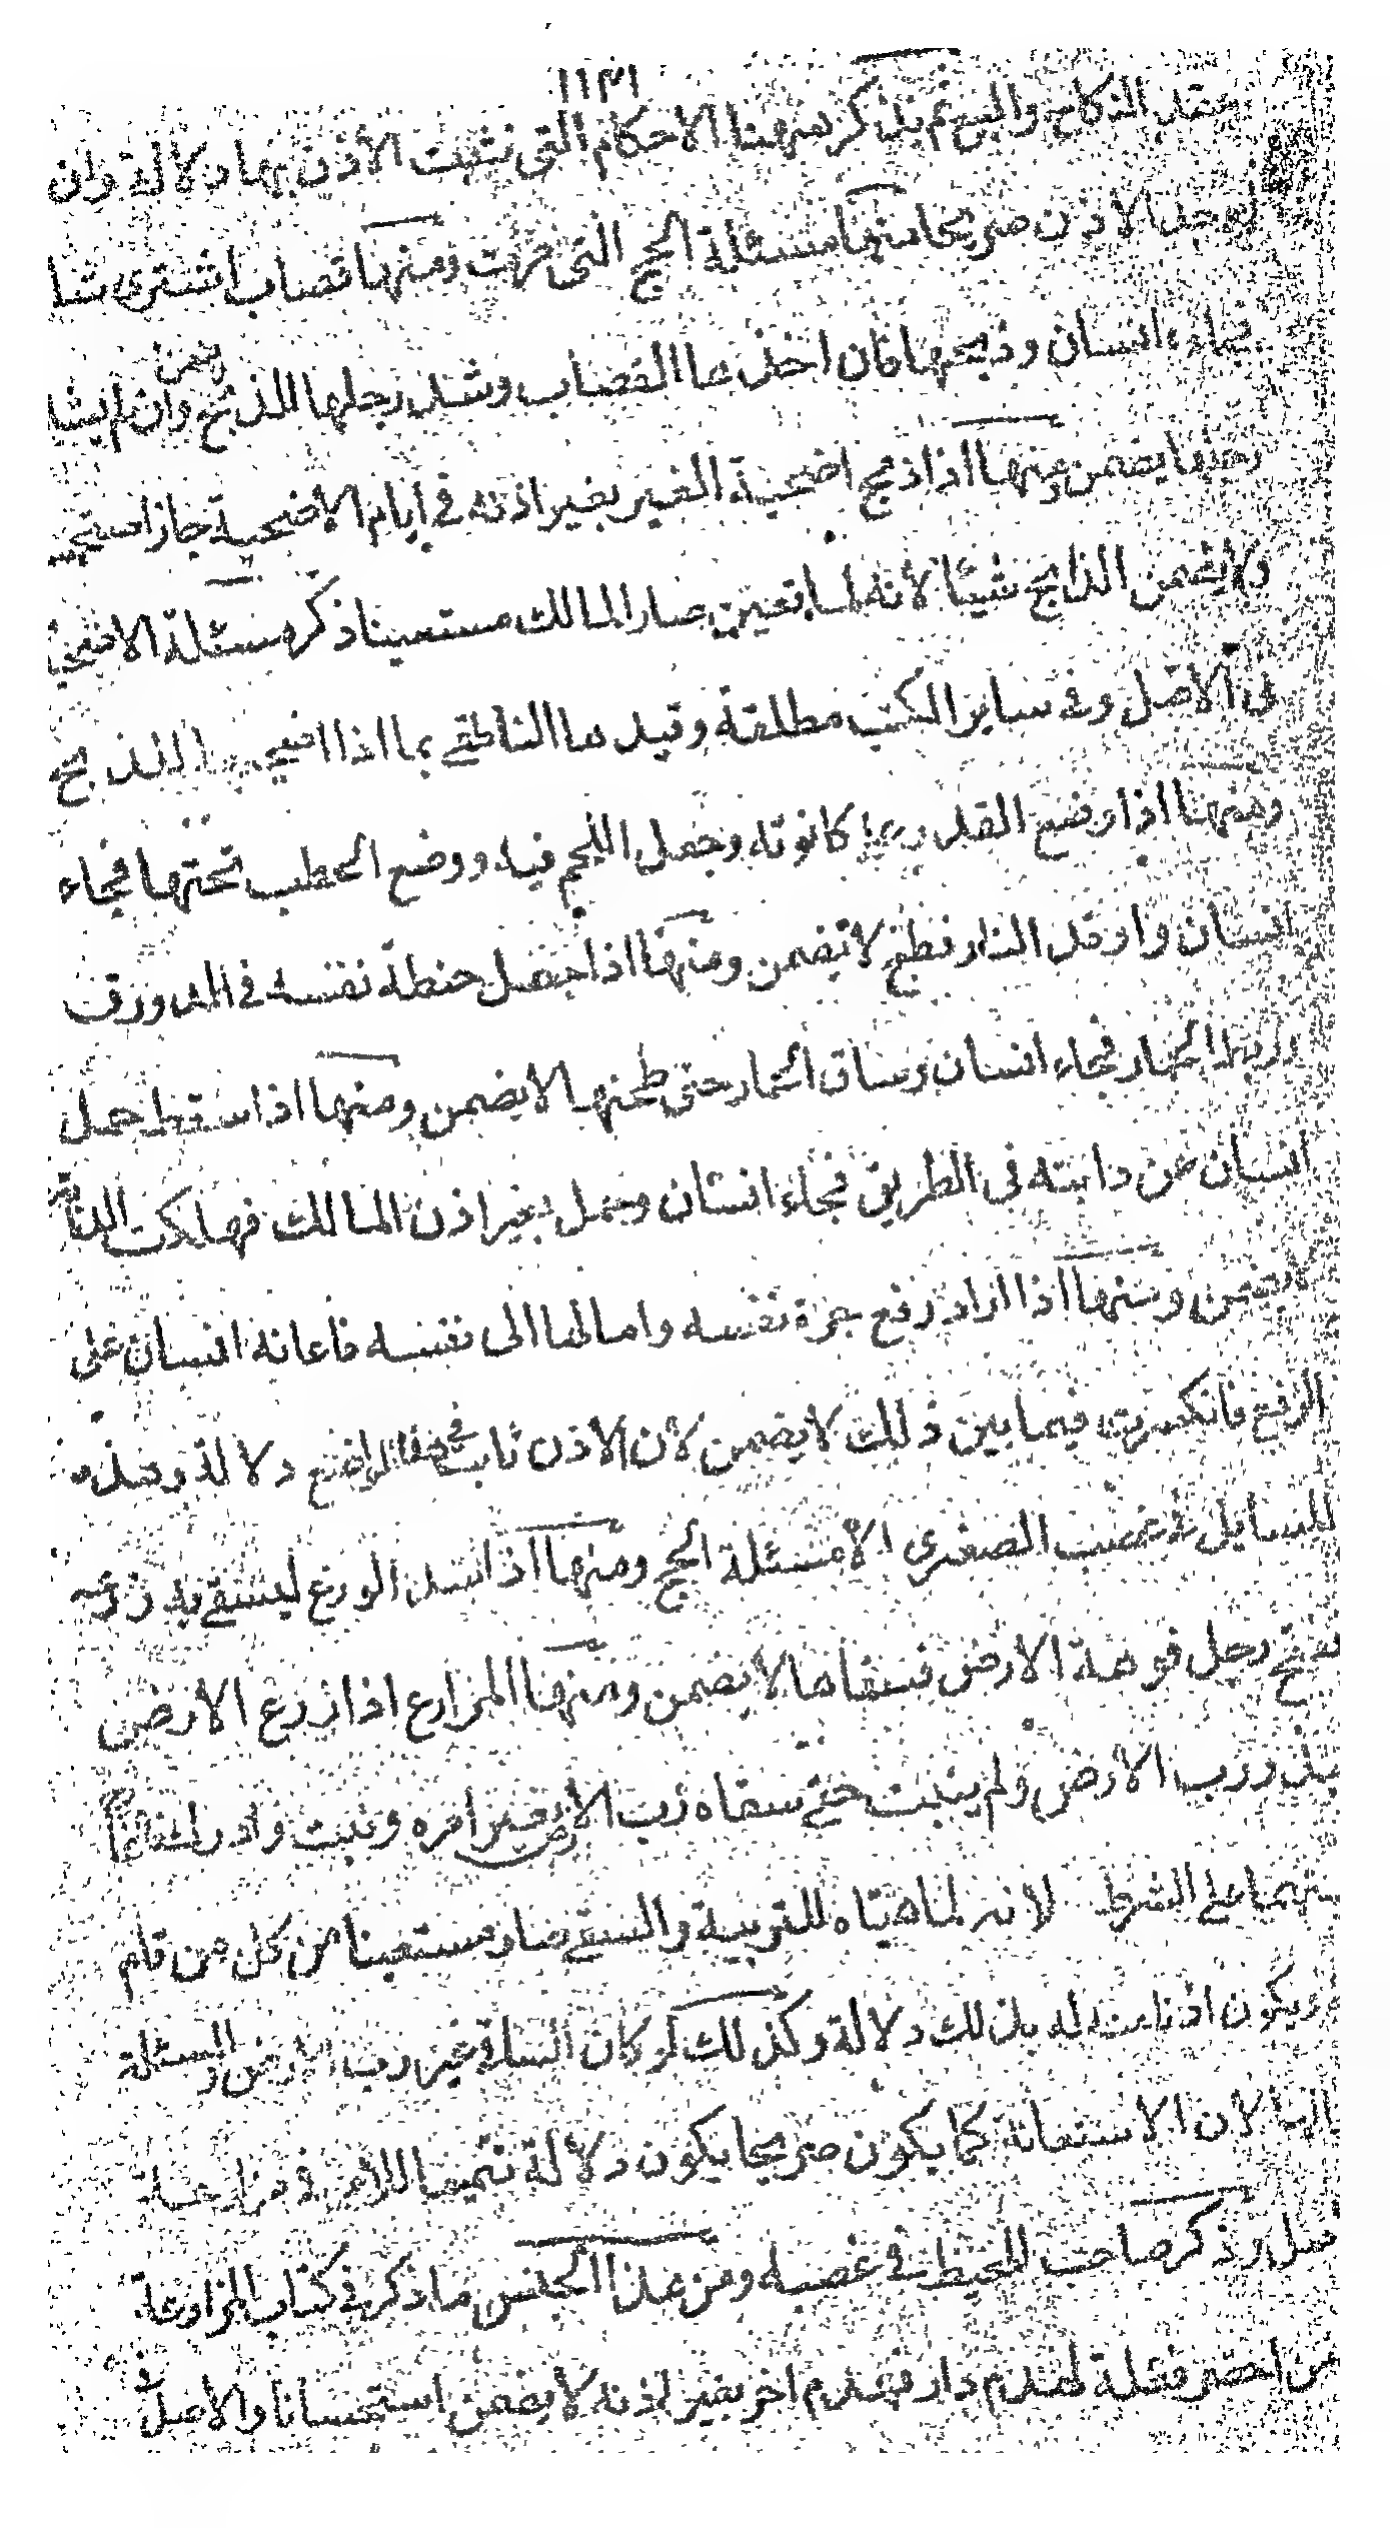 ١١٣١
عقد النكاح والبيع ثم يذكر ههنا الاحكام التى تثبت الأذن بها دلالة وان
لم يوجد الاذن صريحا منها مسئلة الحج التى مرت ومنها قصاب اشترى شا
فجاء انسان وذبحها فان اخذها القصاب وشد رجلها للذبح وان لم يشد
يضمن
رجلها يضمن ومنها اذا ذبح اضحية الغير بغير اذنه في ايام الاضحية جاز استحـ
ولا يضمن الذابح شيئا لأنه لما تعين صار المالك مستعينا ذكر مسئلة الاضحيـ
فى الاصل وفى ساير الكتب مطلقة وقيدها الناطقے بما اذا اضجعها للذبح
ومنها اذا وضع القدر على كانونه وجعل اللحم فيه ووضع الحطب تحتها فجاء
انسان واوقد النار فطبخ لا يضمن ومنها اذا جعل حنطة نفسه فى الدورق
وربط الحمار فجاء انسان وساق الحمار حتى طحنها لا يضمن ومنها اذا سقط حمل
انسان من دابته فى الطريق فجاء انسان وحمل بغير اذن المالك فهلكت الدابة
لا يضمن ومنها اذا اراد رفع جرة نفسه وامالها الى نفسه فاعانه انسان على
الرفع فانكسرت فيما بين ذلك لا يضمن لأن الاذن ثابت فى هذه المواضع دلالة وهذه
المسايل فى غصب الصغرى الا مسئلة الحج ومنها اذا سد الورع ليسقے به زرعه
ففتح رجل فوهة الارض فسقاها لا يضمن ومنها المزارع اذا زرع الارض
ببذر رب الارض ولم ينبت حتے سقاه رب الارض بغير امره ونبت وادرك
بينهما على الشرط لانه لما هيأه للتربية والسقے صار مستعينا من كل من قام
ويكون اذنا منه له بذلك دلالة وكذلك لو كان الساقے غير رب الارض والمسئلة
لان الاستعانة كما يكون صريحا يكون دلالة
وذكر صاحب المحيط فى غصبه ومن هذا الجنس ما ذكر فى كتاب المزارعة
من احضر فعلة لهدم دار فهدم اخر بغير اذنه لا يضمن استحسانا والاصل فى